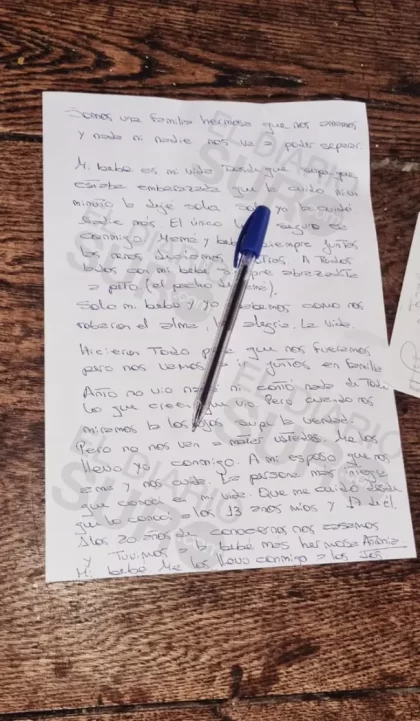 Somos una familia hermosa que nos amamos
y nada ni nadie nos va a poder separar.
Mi bebé es mi vida desde que supe que
estaba embarazada que lo cuido ni un
minuto lo dejé sola solo yo la cuidé
nadie más. El único seguro es
conmigo. Meme y bebé siempre juntos
las manos
todos con mi bebé siempre abrazadita
a pecho (el pecho de meme).
Solo mi bebé y yo sabemos como nos
robaron el alma, la alegría, la vida.
Hicieron Todo para que nos fuéramos
pero nos vamos a ir juntos en familia
no vio nada ni contó nada de Todo
lo que creen que vio Pero cuando nos
miramos a los ojos supe la verdad.
Pero no nos van a matar ustedes. Me los
llevo yo conmigo. A mi esposo que nos
ama y nos cuida. La persona más
que conocí es mi vida. Que me cuidó desde
que lo conocí a los 13 años míos y 17 de él.
A los 20 años de conocernos nos casamos
y Tuvimos la bebé más hermosa
Mi bebé Me los llevo conmigo a los
EL DIARIO
SUR
EL DIARIO
SUR